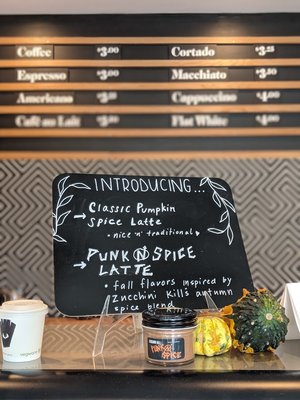 Coffee $3.00 Cortado $3.25
Espresso $3.00 Macchiato $3.50
Americano Cappuccino $4.00
Café au Lait Flat White $4.00
INTRODUCING...
→ Classic Pumpkin
Spice Latte
• nice 'n' traditional
→ PUNK N SPICE
LATTE
• fall flavors inspired by
Zucchini Kill's autumn
spice blend
PUNK N SPICE